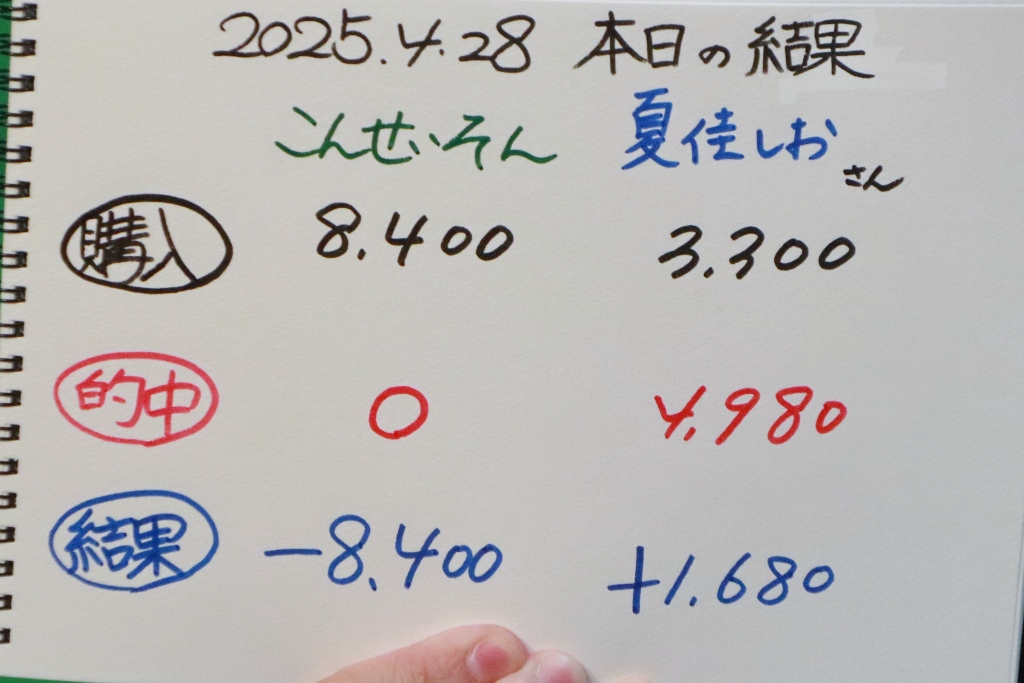 2025.4.28 本日の結果
こんせいそん 夏佳しおさん
購入 8.400 3.300
的中 0 4.980
結果 -8.400 +1.680